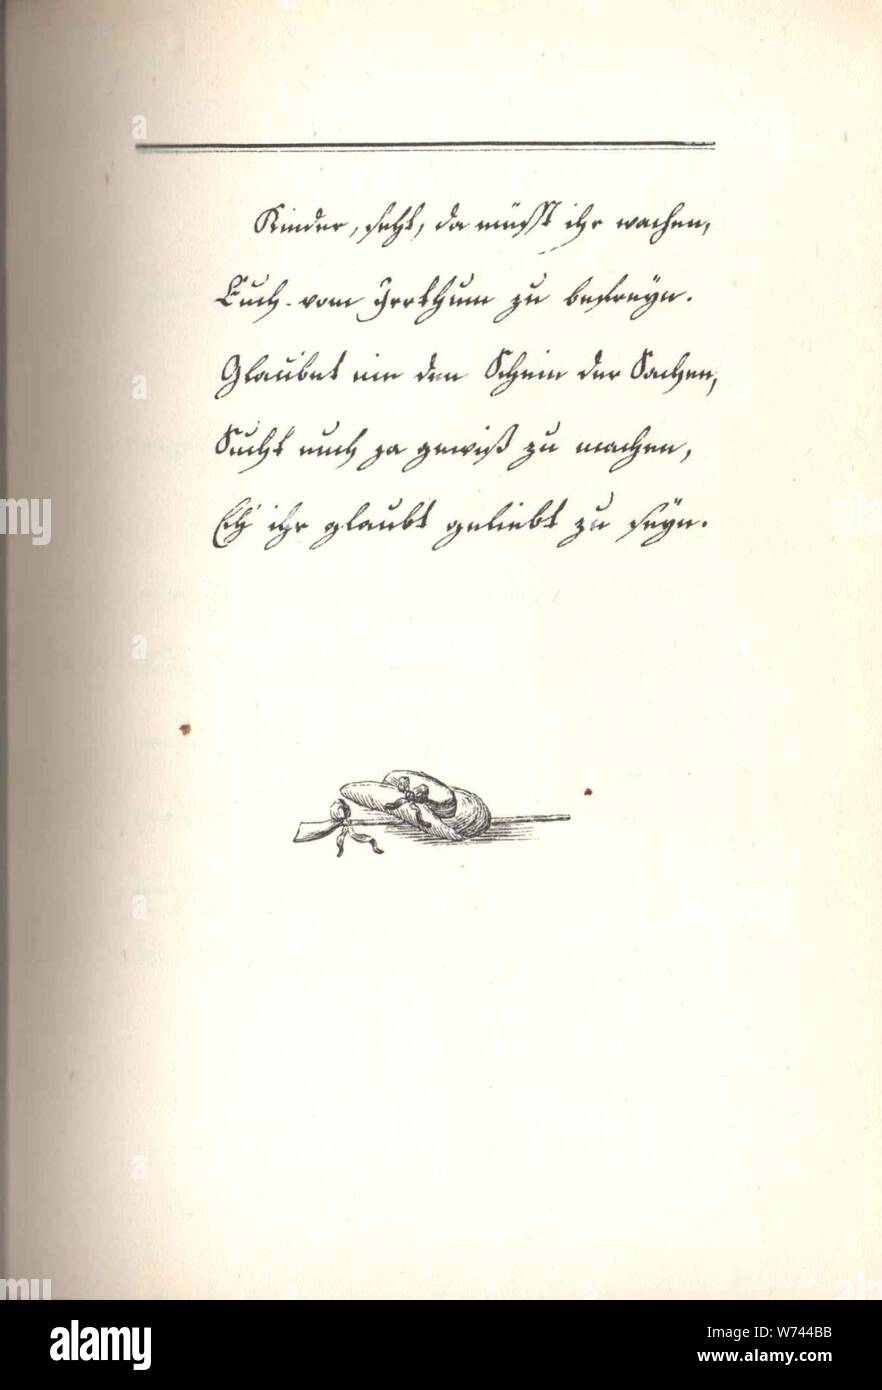 Kinder, seht, da müsst ihr wachen,
Euch vom Irrthum zu befreyn.
Glaubet nie den Schein der Sachen,
Sucht euch ja gewiß zu machen,
Eh' ihr glaubt geliebt zu seyn.
my
alamy
www.alamy.com
Image ID: W744BB